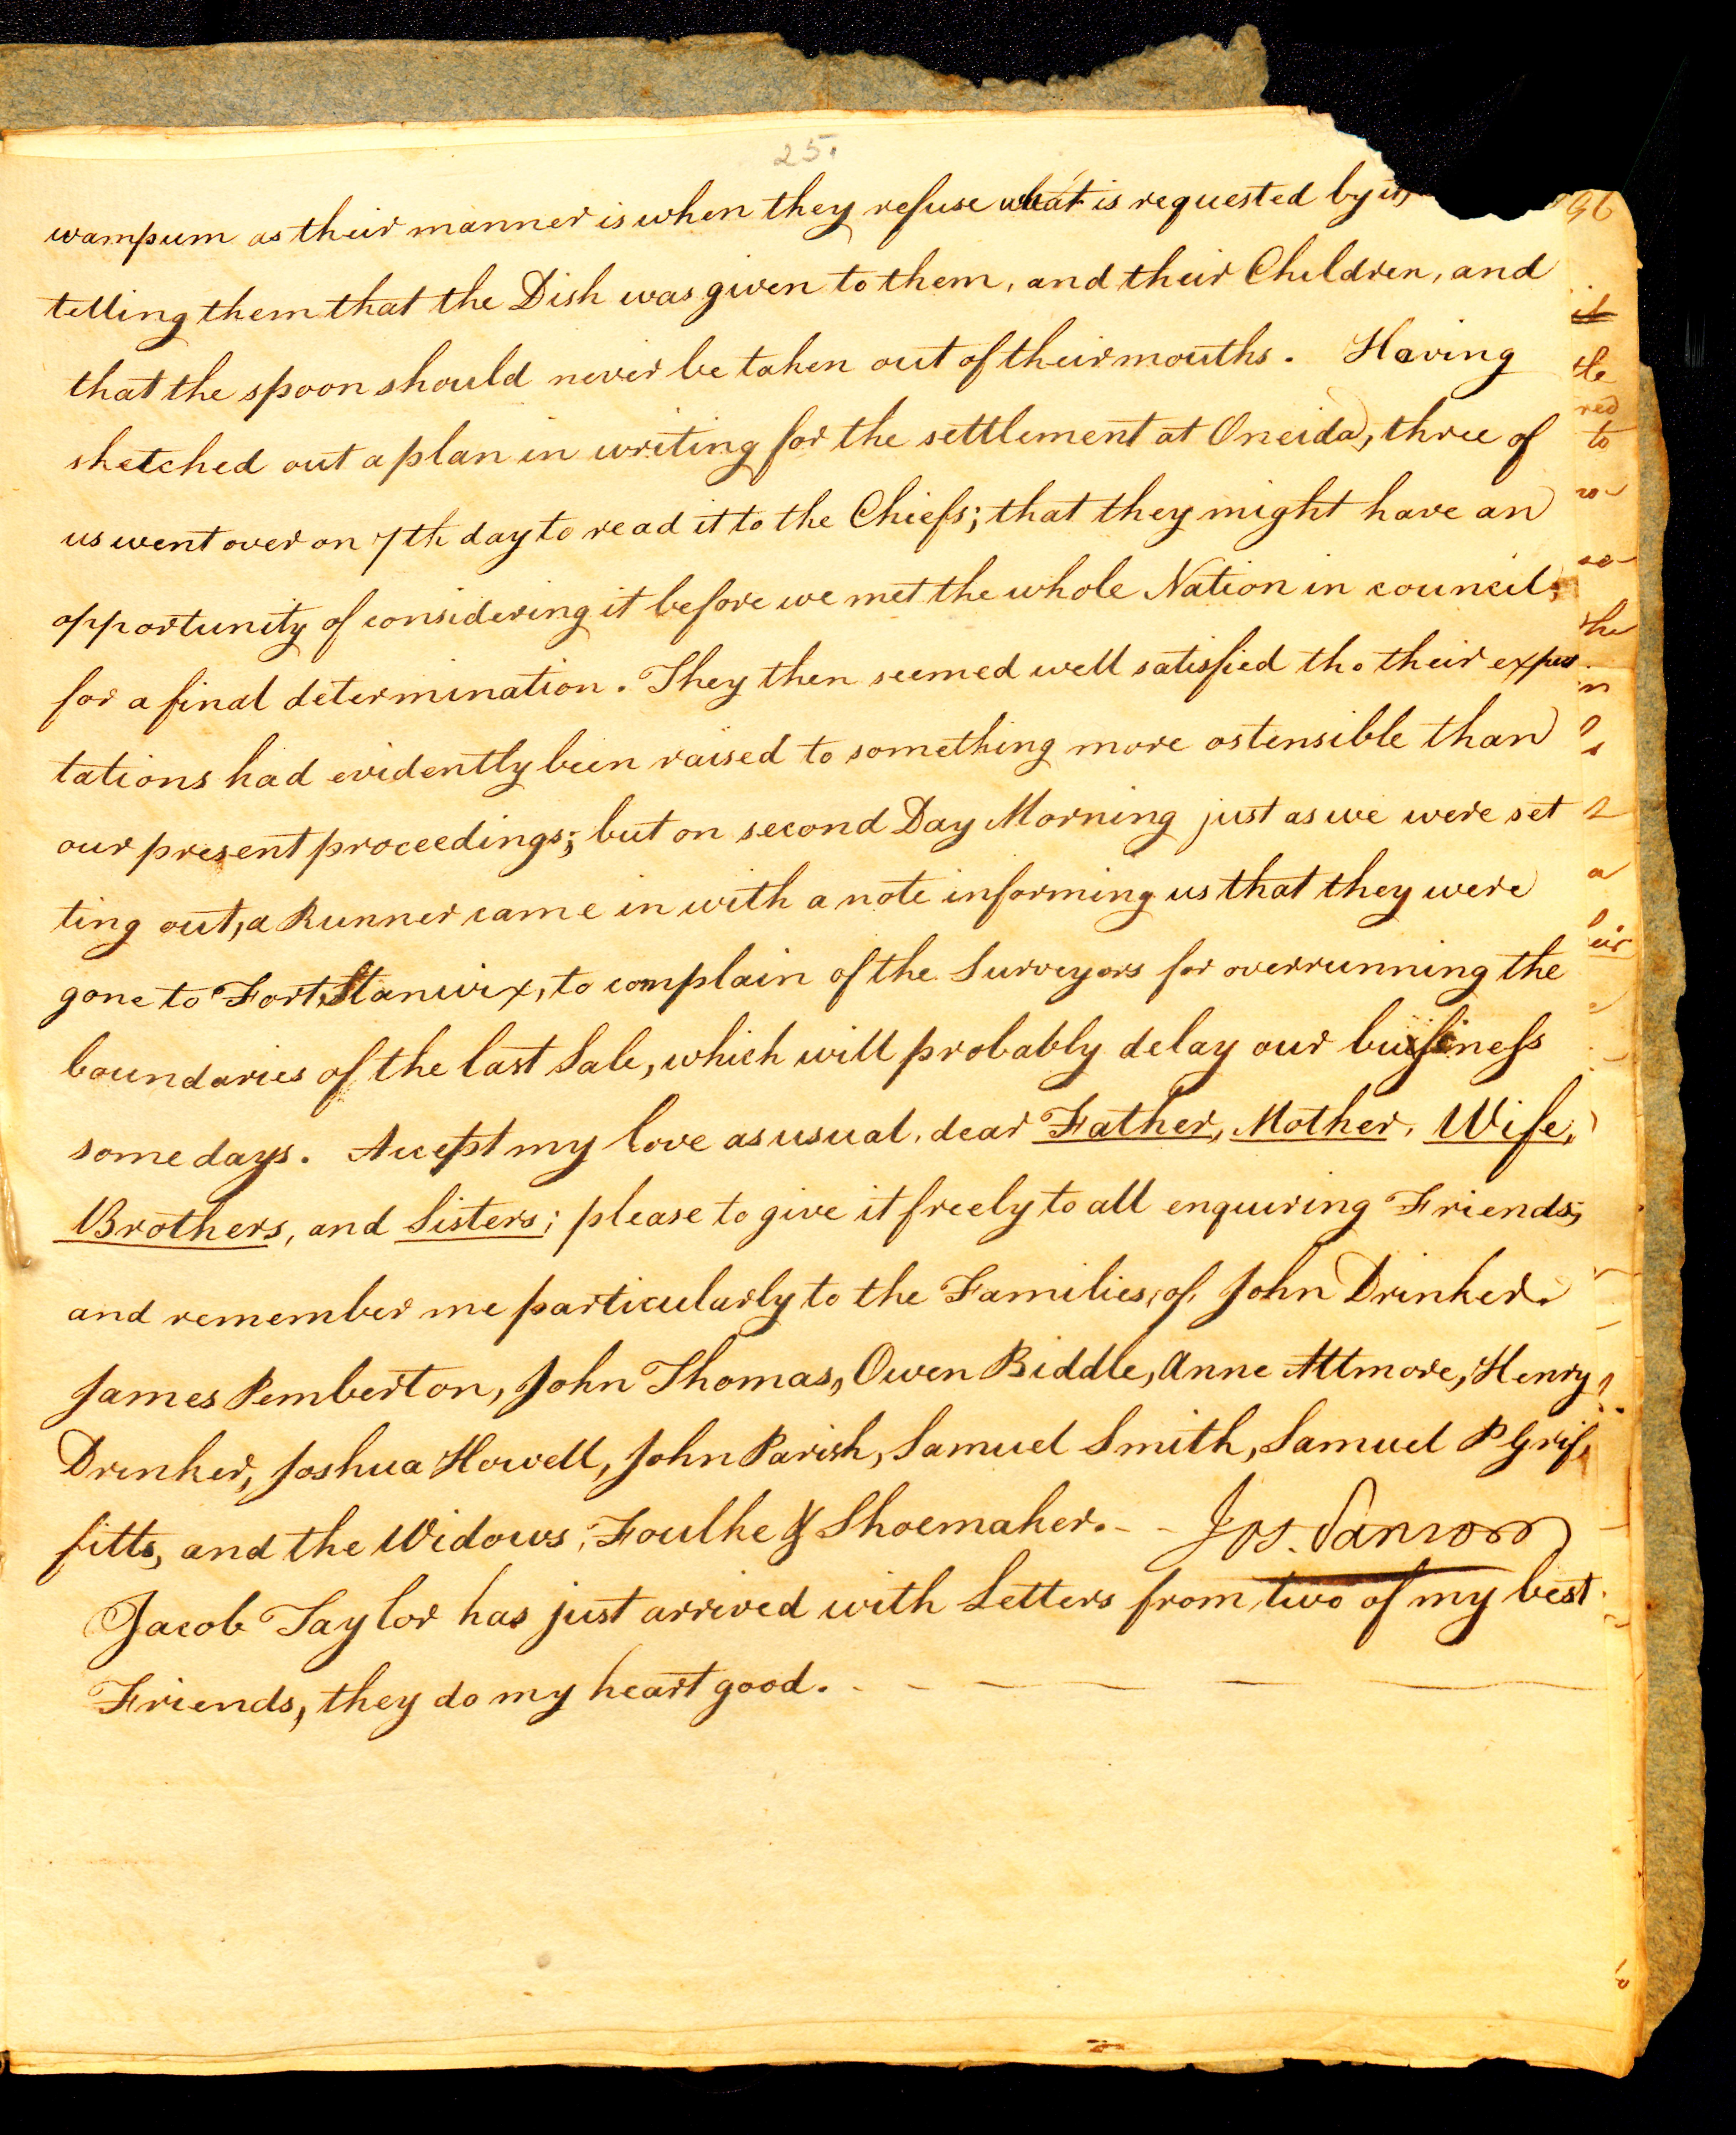 25.
wampum as their manner is when they refuse what is requested by it,
telling them that the Dish was given to them, and their Children, and
that the spoon should never be taken out of their mouths. Having
sketched out a plan in writing for the settlement at Oneida, three of
us went over on 7th day to read it to the Chiefs; that they might have an
opportunity of considering it before we met the whole Nation in council,
for a final determination. They then seemed well satisfied tho their expec
tations had evidently been raised to something more ostensible than
our present proceedings; but on second Day Morning just as we were set
ting out, a Runner came in with a note informing us that they were
gone to Fort Stanwix, to complain of the Surveyors for overrunning the
boundaries of the last Sale, which will probably delay our business
some days. Accept my love as usual, dear Father, Mother, Wife,
Brothers, and Sisters; please to give it freely to all enquiring Friends;
and remember me particularly to the Families, of, John Drinker.
James Pemberton, John Thomas, Owen Biddle, Anne Attmore, Henry
Drinker, Joshua Howell, John Parish, Samuel Smith, Samuel P Grif,
fitts, and the Widows, Foulke & Shoemaker. - - Jos. Sansom
Jacob Taylor has just arrived with Letters from two of my best
Friends, they do my heart good.
96
it
the
red
to
the
in
a
eir